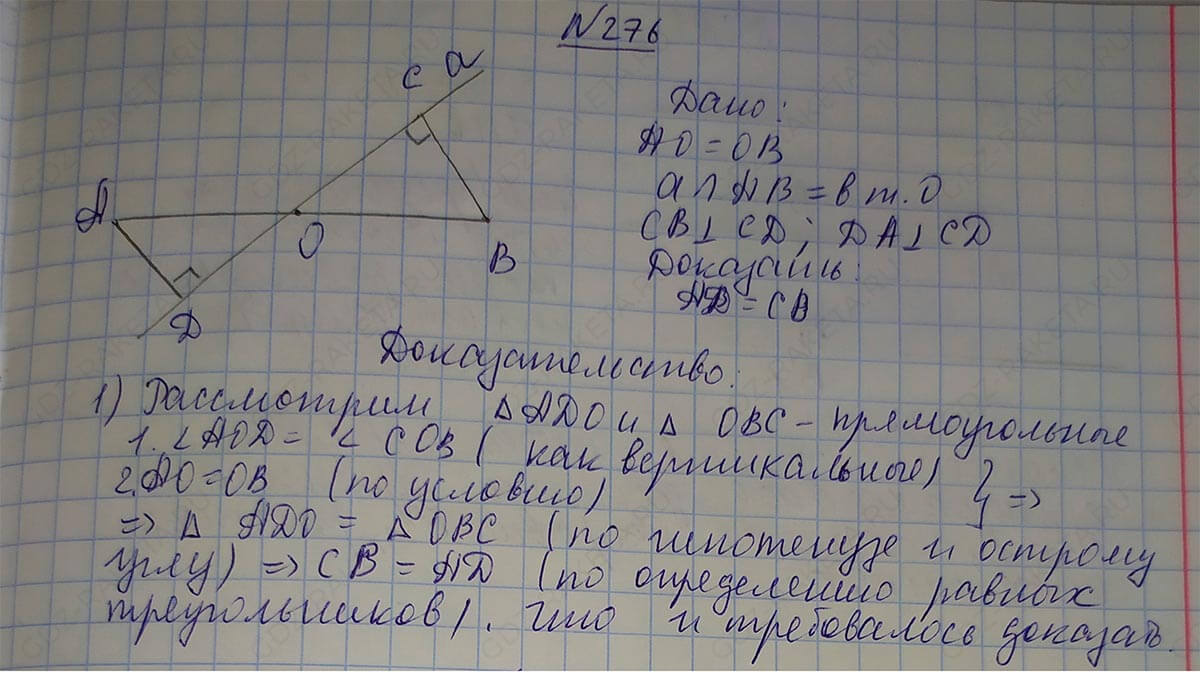 №276
C a
A
O
B
D
Дано:
AO=OB
a∩AB=в т.O
CB⊥CD; DA⊥CD
Доказать:
AD=CB
Доказательство:
1) Рассмотрим △ADO и △OBC-прямоугольные
1.∠AOD=∠COB (как вертикальные)
2.AO=OB (по условию) } =>
=> △ADO=△OBC (по гипотенузе и острому
углу) => CB=AD (по определению равных
треугольников). Что и требовалось доказать.